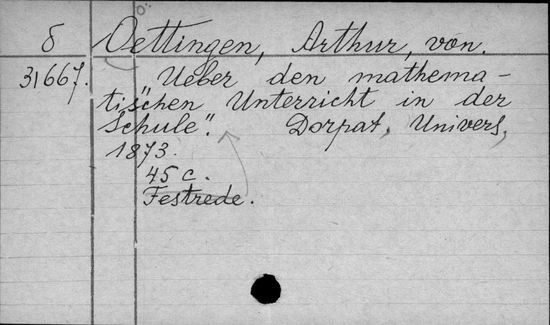 ö.
δ Oettingen, Arthur, von.
31667. "Ueber den mathema-
tischen Unterricht in der
Schule". Dorpat, Univers,
1873.
45 c.
Festrede.